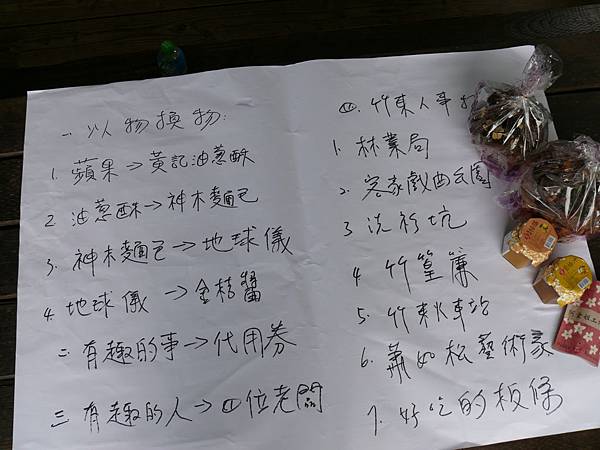 一 以物換物:
1. 蘋果→黃記油蔥酥
2 油蔥酥→神木麵包
3. 神木麵包→地球儀
4. 地球儀→金桔醬
二 有趣的事→代用券
三 有趣的人→四位老闆
四. 竹東人事物
1. 林業局
2. 客家戲曲公園
3 洗衫坑
4 竹簧簾
5. 竹東火車站
6. 蕭如松藝術家
7. 好吃的板條